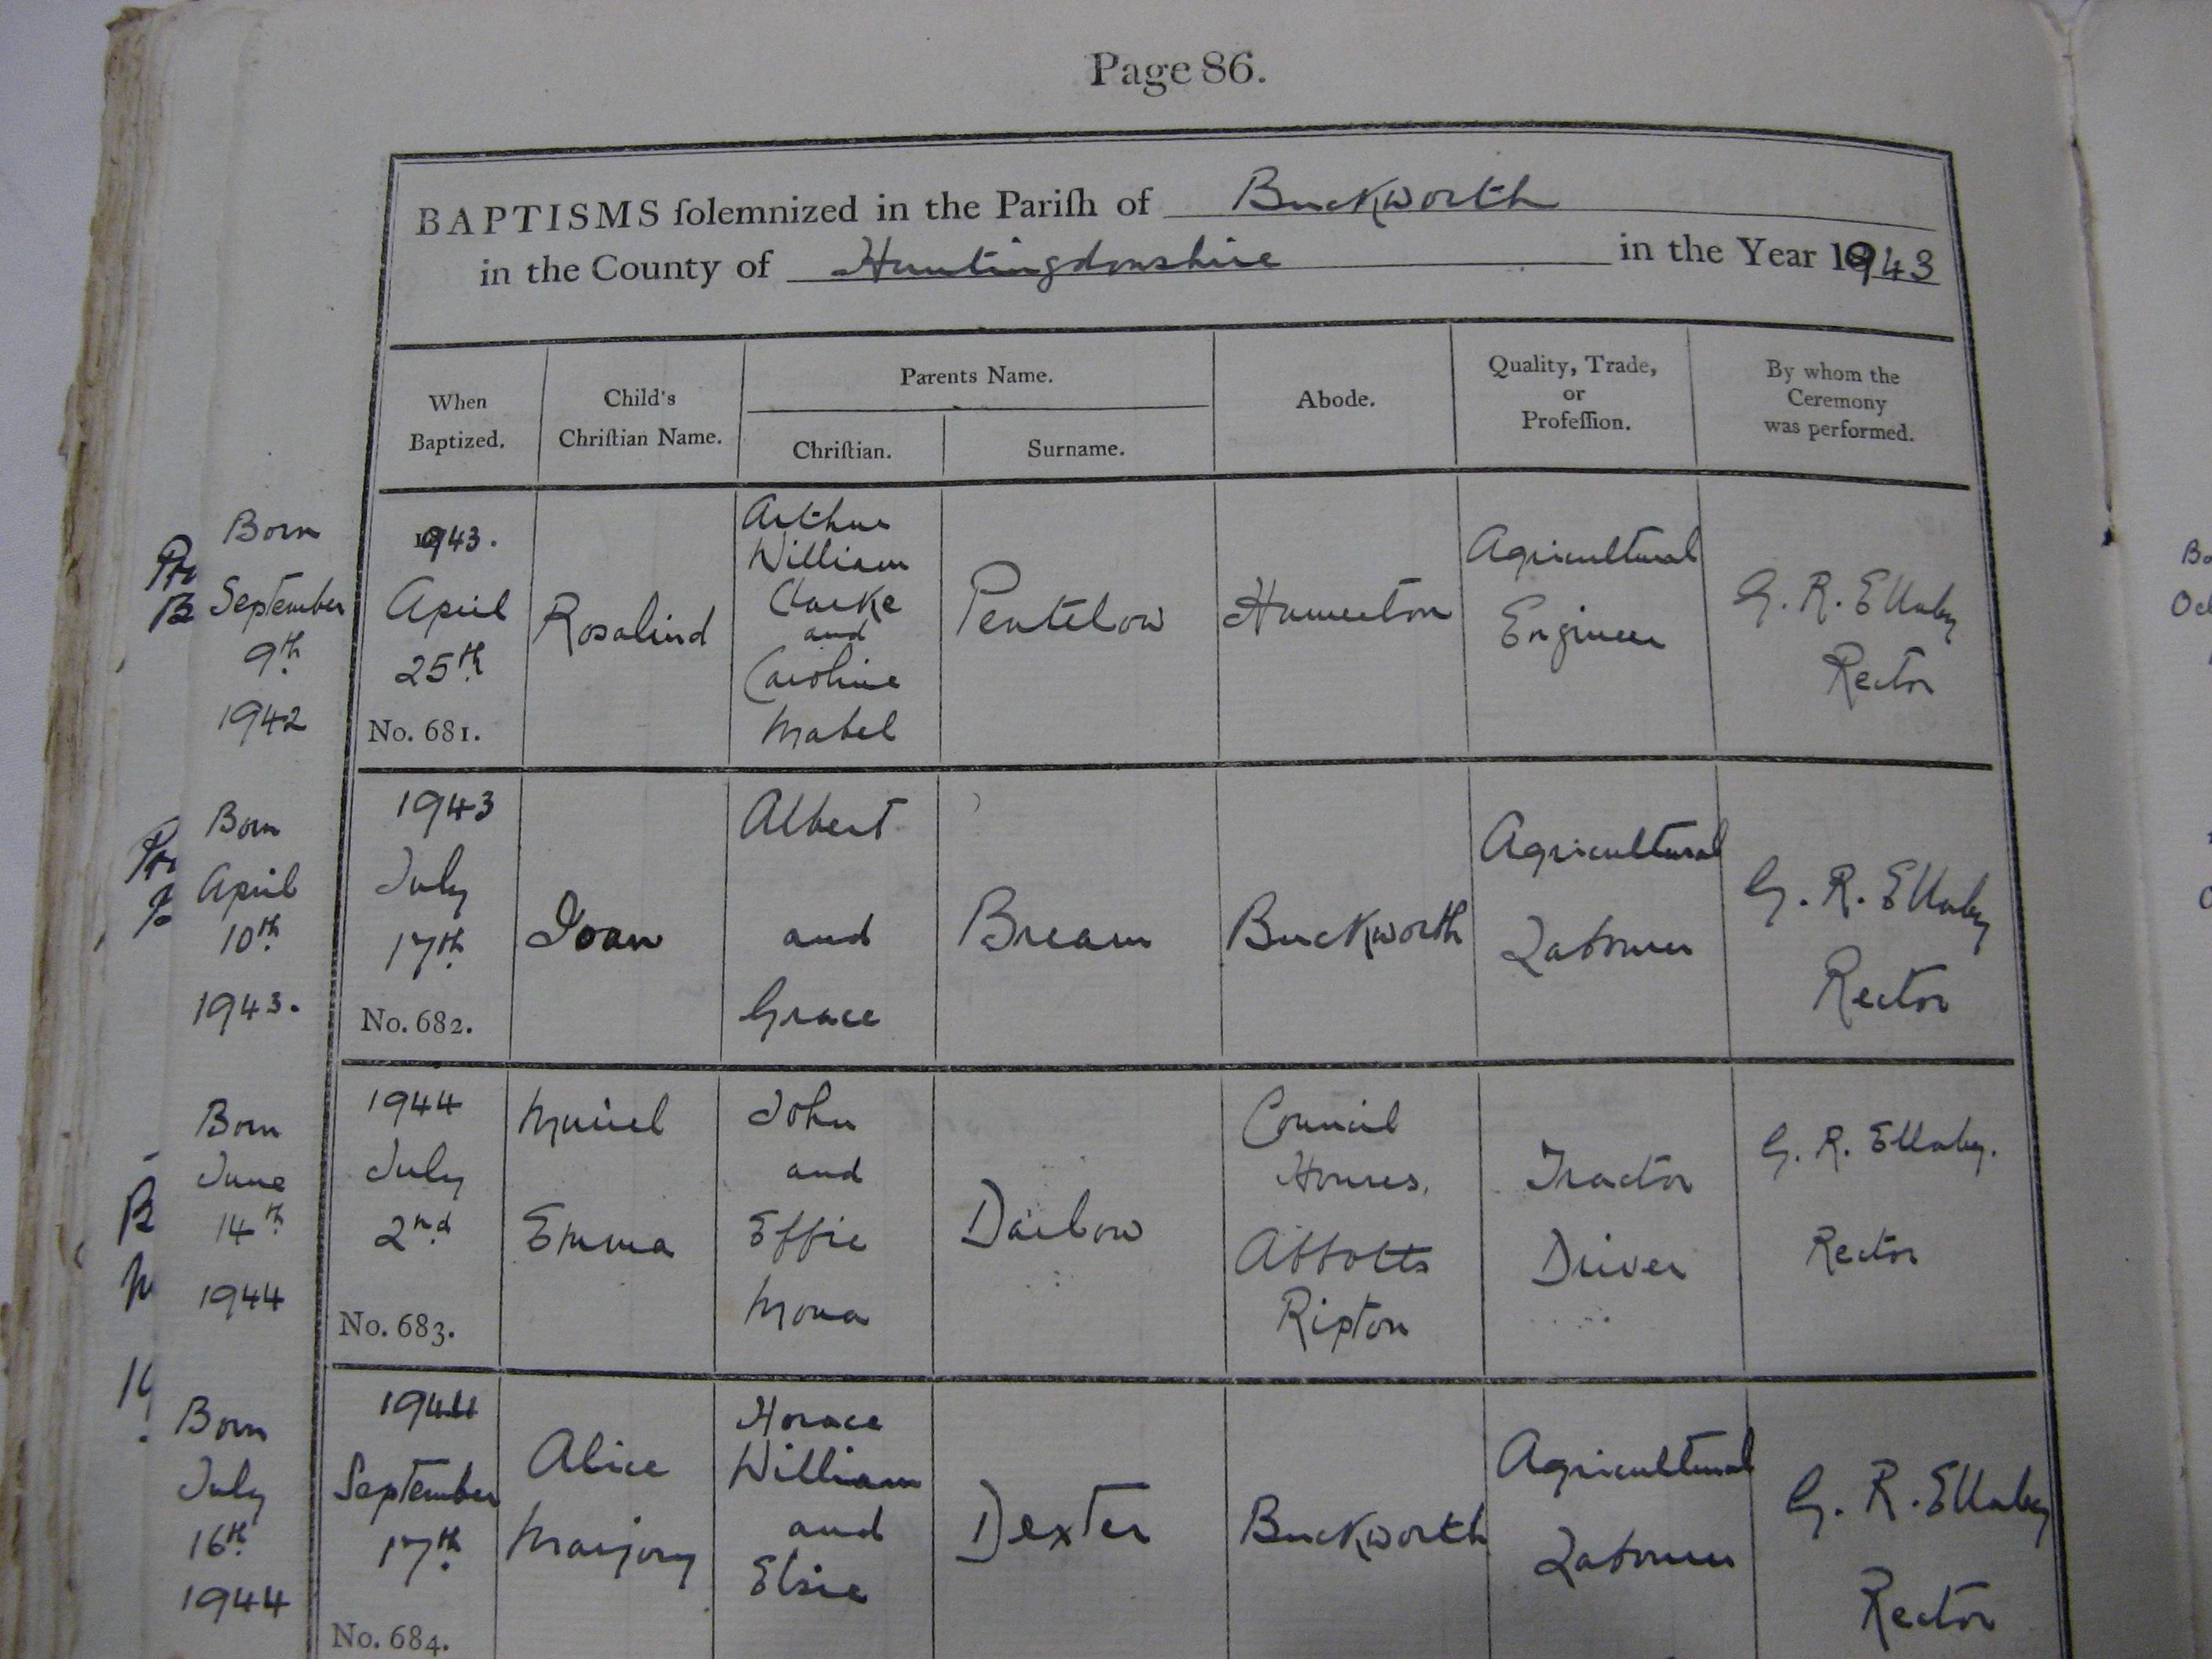 Page 86.
BAPTISMS ſolemnized in the Pariſh of Buckworth
in the County of Huntingdonshire in the Year 1943
When
Baptized.
Child's
Chriſtian Name.
Parents Name.
Chriſtian.
Surname.
Abode.
Quality, Trade,
or
Profeſſion.
By whom the
Ceremony
was performed.
Born
September
9th
1942
1943.
April
25th
No. 681.
Rosalind
Arthur
William
Clarke
and
Caroline
Mabel
Pentelow
Hamerton
Agricultural
Engineer
G. R. Ellaby
Rector
Born
April
10th
1943.
1943
July
17th
No. 682.
Joan
Albert
and
Grace
Bream
Buckworth
Agricultural
Labourer
G. R. Ellaby
Rector
Born
June
14th
1944
1944
July
2nd
No. 683.
Muriel
Emma
John
and
Effie
Mona
Darlow
Council
Houses,
Abbotts
Ripton
Tractor
Driver
G. R. Ellaby.
Rector
Born
July
16th
1944
1944
September
17th
No. 684.
Alice
Marjory
Horace
William
and
Elsie
Dexter
Buckworth
Agricultural
Labourer
G. R. Ellaby
Rector